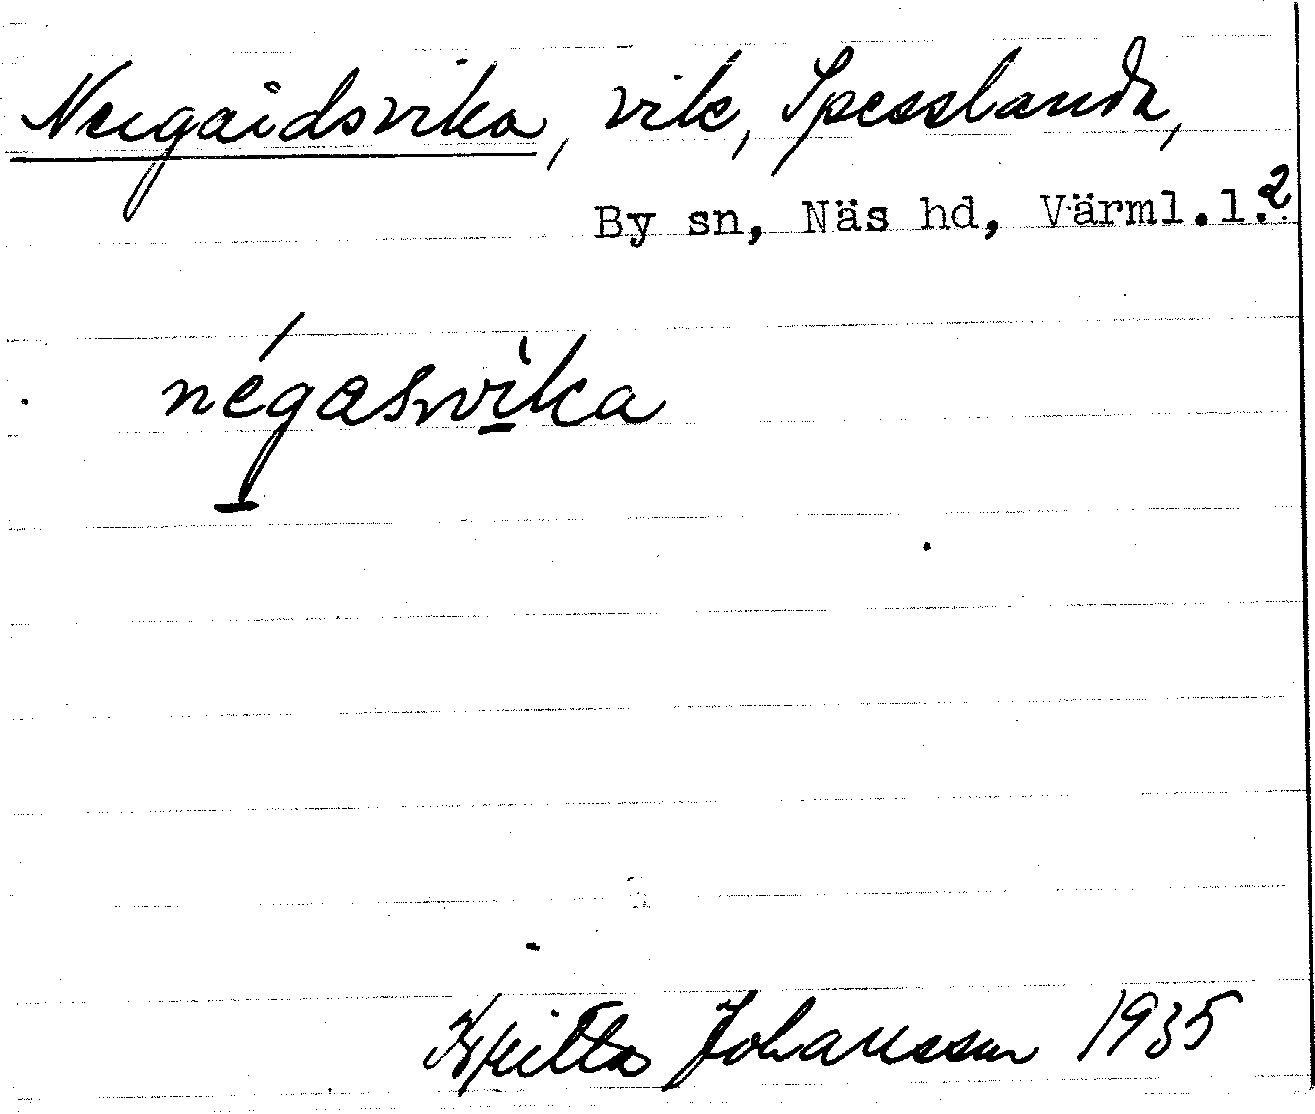 Neigaidsvika, vik, Spesslanda,
By sn, Näs hd, Värml.l.2
négasvìka
Britta Johansson 1935